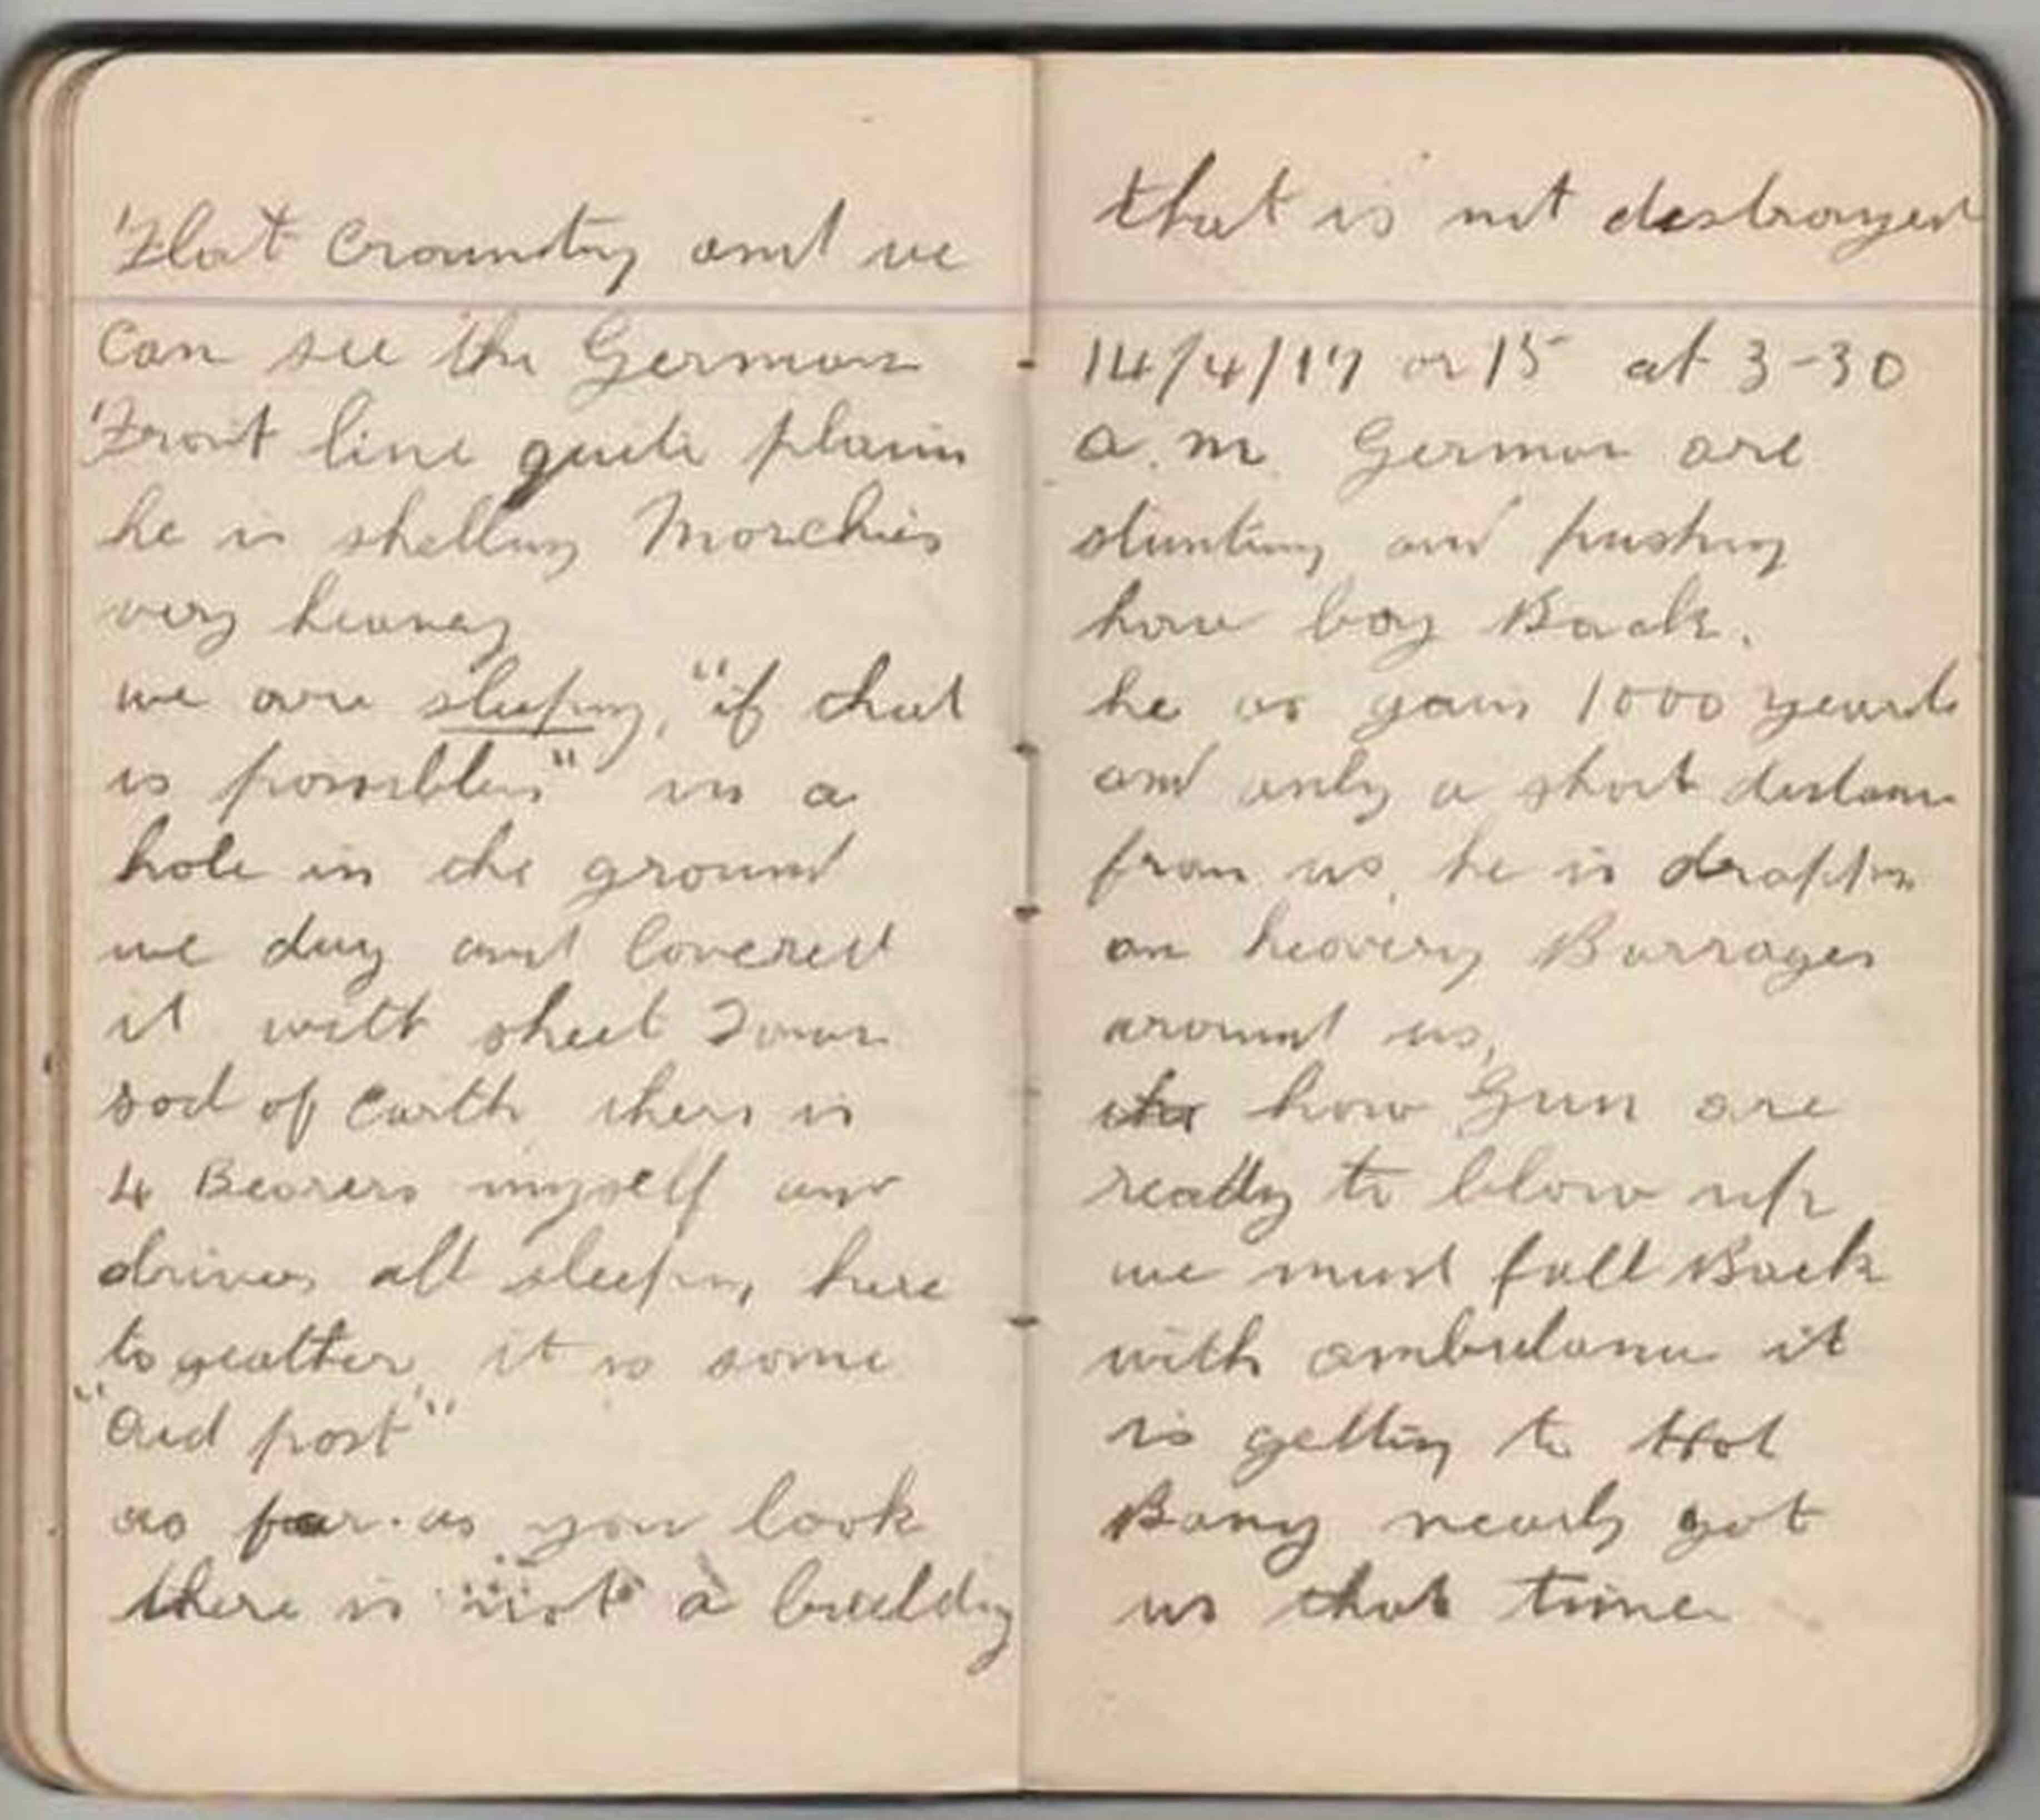 Flat Crountry and we
can see the German
Front line quite plain
he is shelling Morchies
very heavey
we are sleeping, "if that
is possible" in a
hole in the ground
we dug and Covered
it with sheet Iron
sod of Earth thers is
4 Bearers myself and
driver all sleeping here
to geather it is some
"Aid post"
as far as you look
there is "not" a building
that is not destroyed
14/4/17 or 15 at 3-30
a.m. German are
stunting and pushing
how boy Back.
he as gain 1000 yeards
and only a short distance
from us, he is dropping
an heavery Barrages
around us,
how Gun are
ready to blow up
we must fall Back
with ambulance it
is getting to Hot
Bang nearly got
us that time